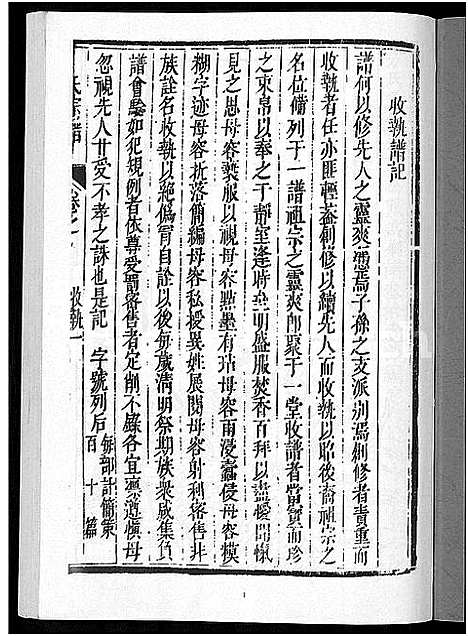 收執譜記
譜何以修先人之靈爽憑焉子孫之支派別焉創修者責重而
收執者任亦匪輕葢創修以續先人而收執以昭後裔祖宗之
名位備列于一譜祖宗之靈爽即聚于一堂收譜者當寶而珍
之束帛以奉之于靜室逢時至明盛服焚香百拜以盡僾聞愾
見之思毋容褻服以視毋容點墨有玷毋容雨浸蠹侵毋容模
糊字迹毋容折落簡編毋容私授異姓展閱毋容射利密售非
族詮名收執以絶偽冐自詮以後每歲清明祭期族衆咸集負
譜會驗如犯規例者依尊受罰密售者定削不錄各宜凛遵愼毋
忽視先人甘受不孝之誅也是記 字號列后 每部計簡策
百十篇
氏宗譜 卷之 收執 一